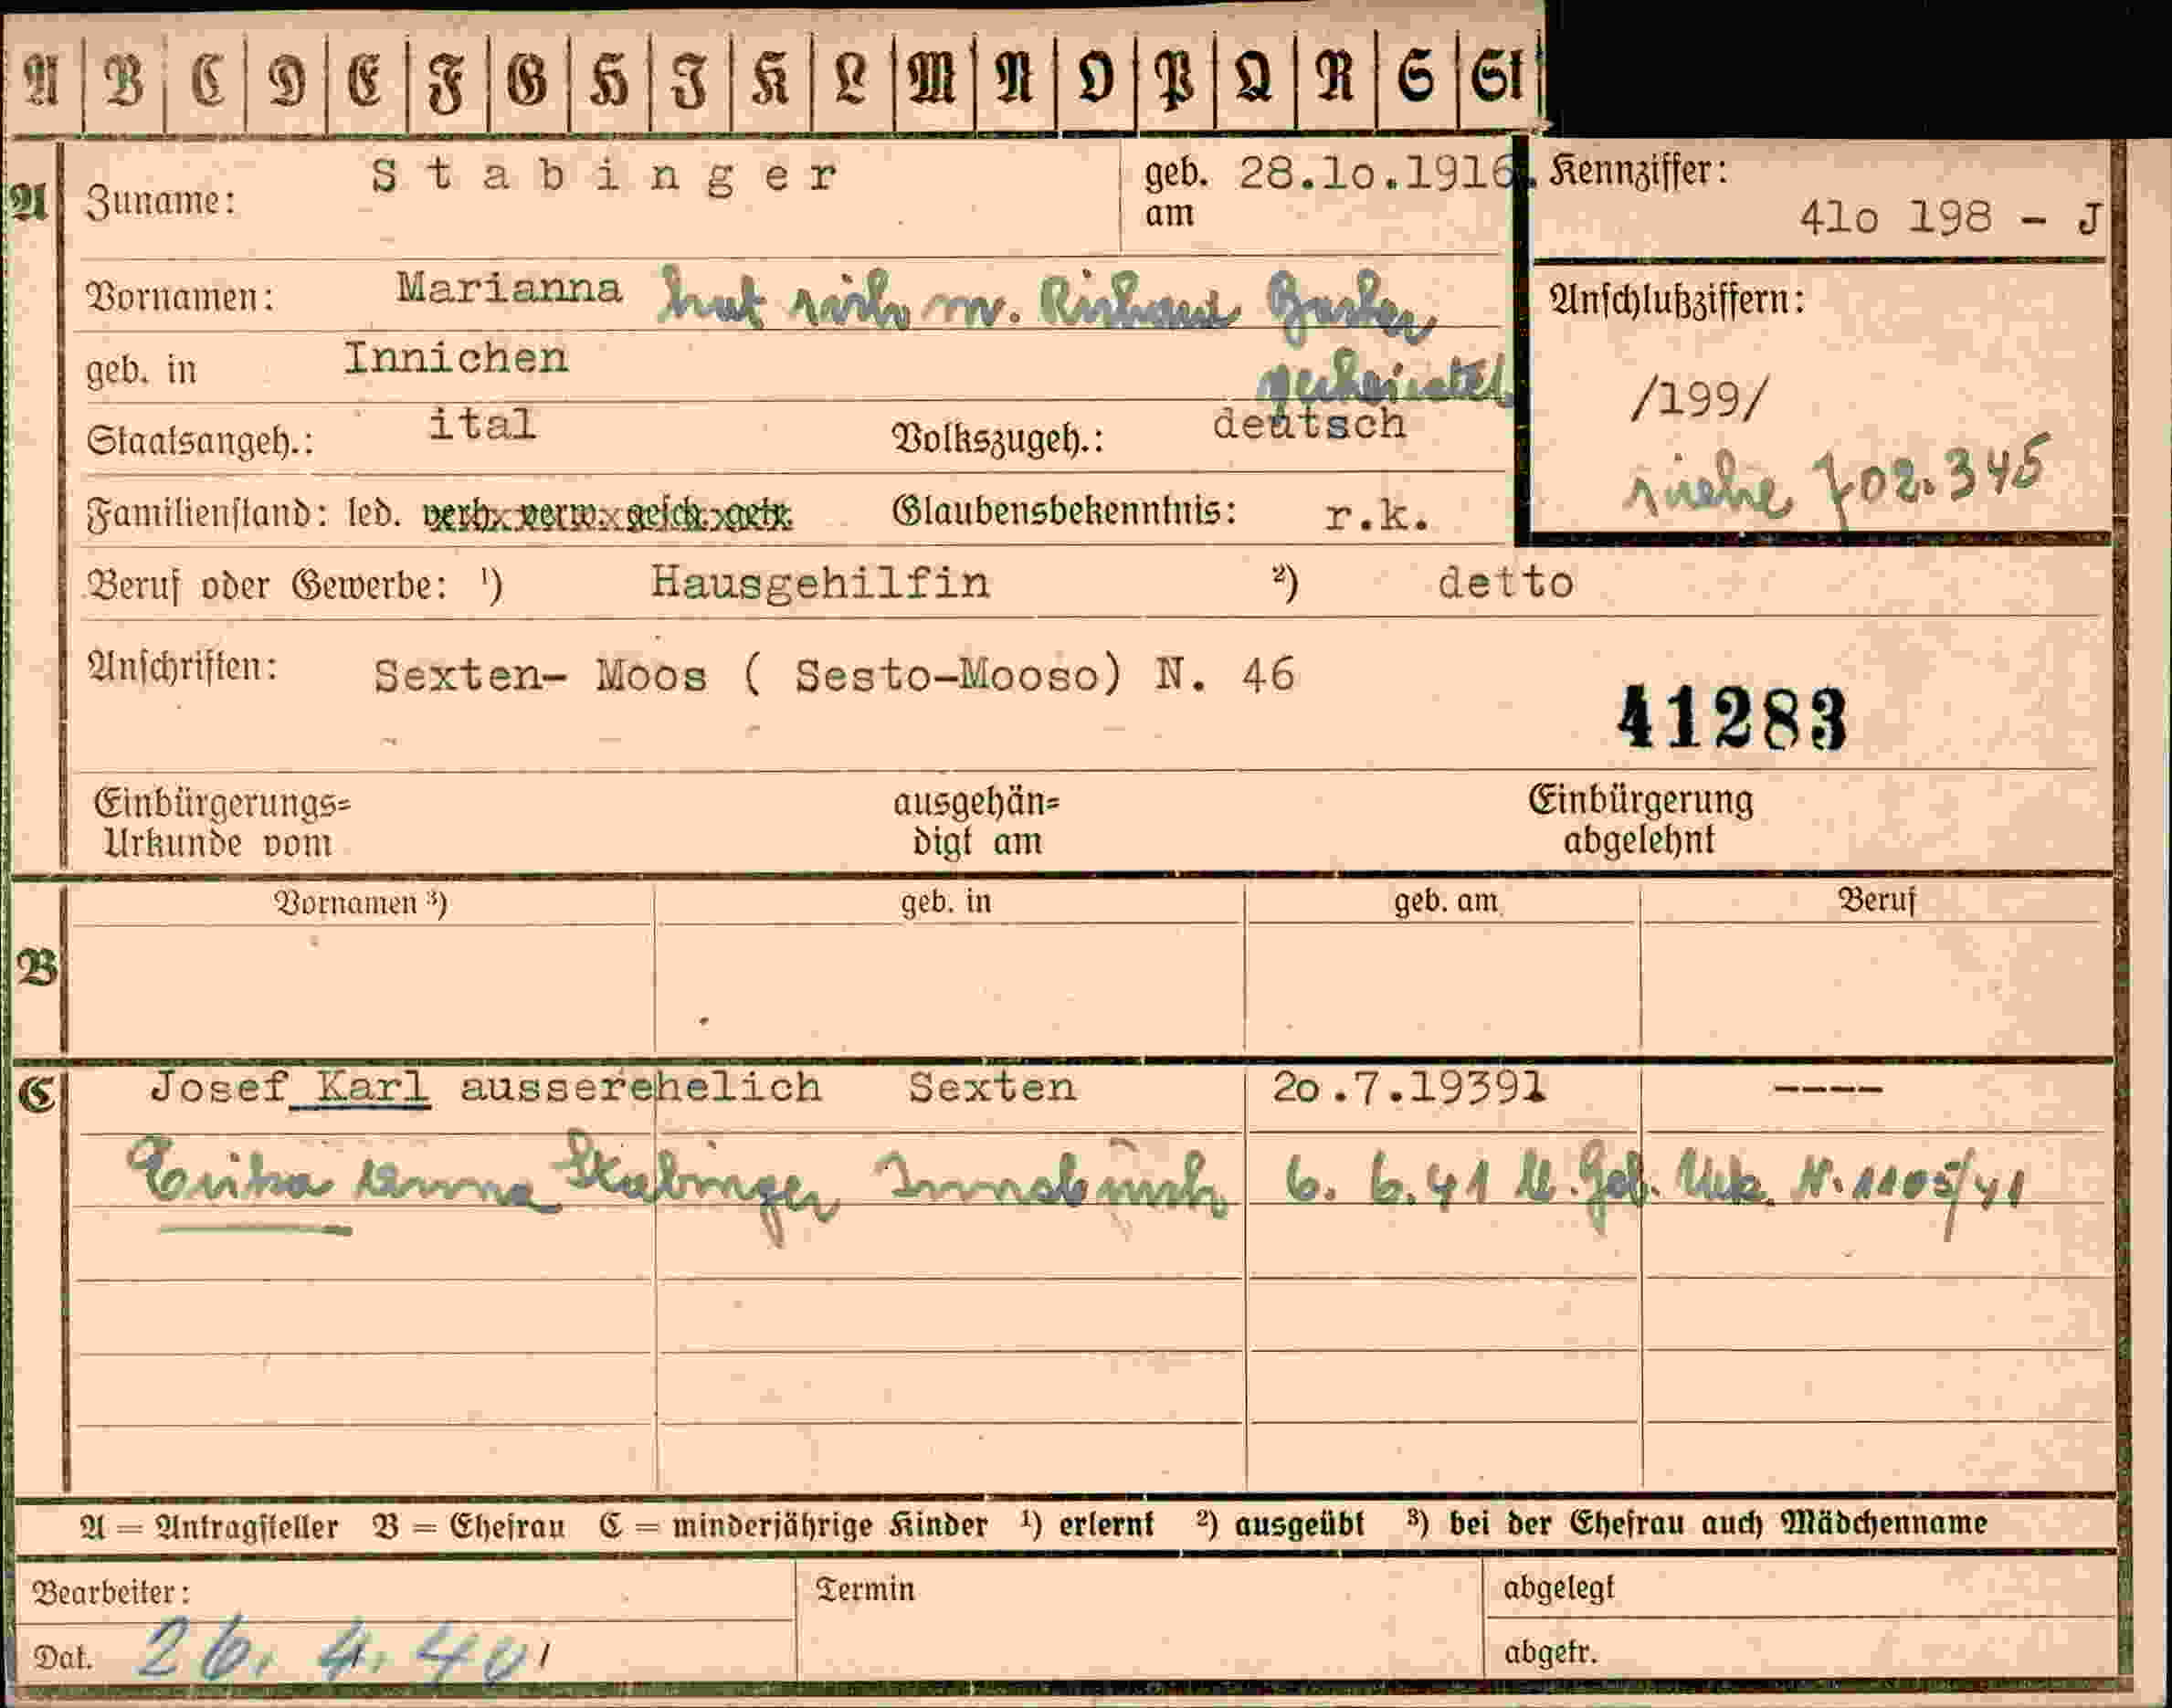 A B C D E F G H I K L M N O P Q R S St
A Zuname: Stabinger geb. am 28.10.1916. Kennziffer: 410 198 - J
Vornamen: Marianna hat sich m. Richard geheiratet Anschlußziffern:
geb. in Innichen /199/
Staatsangeh.: ital Volkszugeh.: deutsch siehe 702.345
Familienstand: led. verh. verw. gesch. getr. Glaubensbekenntnis: r.k.
Beruf oder Gewerbe: ¹) Hausgehilfin ²) detto
Anschriften: Sexten- Moos ( Sesto-Mooso) N. 46
41283
Einbürgerungs= Urkunde vom ausgehän= digt am Einbürgerung abgelehnt
B Vornamen ³) geb. in geb. am Beruf
C Josef Karl ausserehelich Sexten 20.7.1939l ----
Erika Anna Stabinger Innsbruck 6. 6.41 lt. Geb. Urk. N. 1105/41
A = Antragsteller B = Ehefrau C = minderjährige Kinder ¹) erlernt ²) ausgeübt ³) bei der Ehefrau auch Mädchenname
Bearbeiter: Termin abgelegt
Dat. 26. 4. 40/ abgetr.